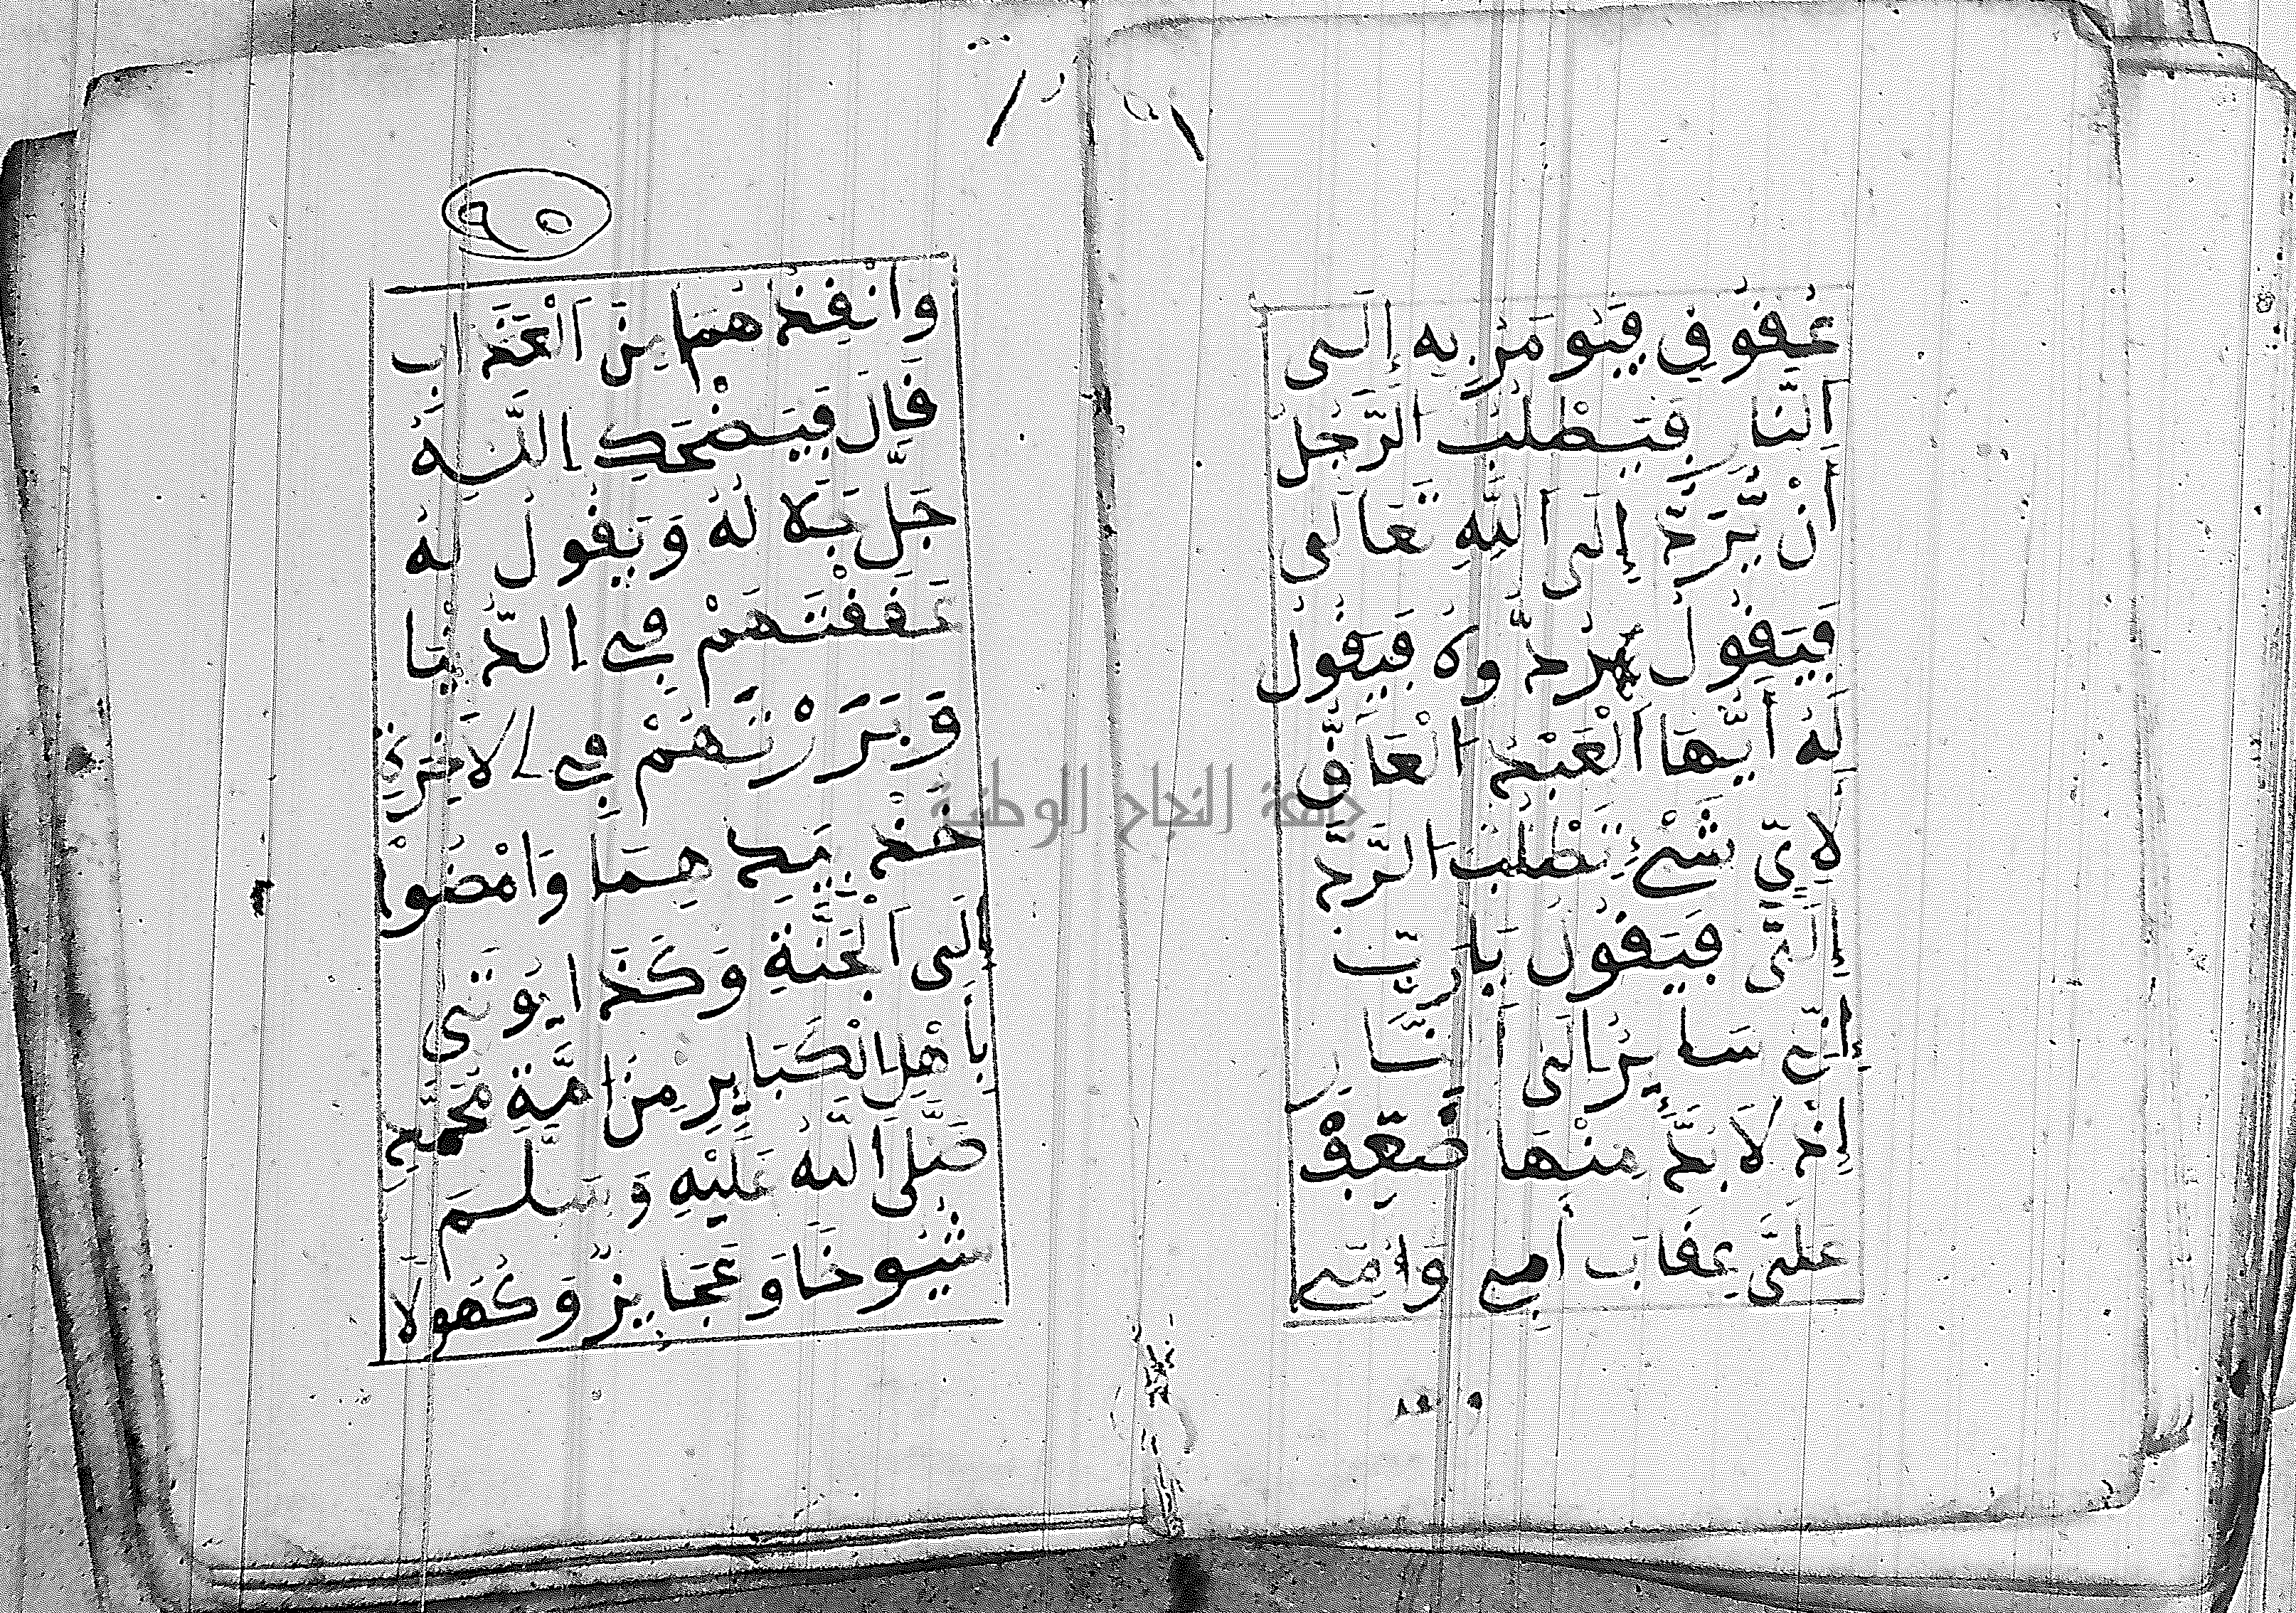 عُقُوقٍ فَيُومَرُ بِهِ إِلَى
النَّارِ فَيَطْلُبُ الرَّجُلُ
أَنْ يُّرَدَّ إِلَى اللَّهِ تَعَالَى
فَيَقُولُ رُدُّوهُ فَيَقُولُ
لَهُ أَيُّهَا الْعَبْدُ الْعَاقُّ
لِأَيِّ شَيْءٍ تَطْلُبُ الرَّدَّ
إِلَيَّ فَيَقُولُ يَارَبِّ
إِنِّي سَايِرٌ إِلَى النَّارِ
إِذْ لَا بُدَّ مِنْهَا ضَعِّفْ
عَلَيَّ عِقَابَ أَبِي وَأُمِّي
وانقذ
٩٥
وَأَنْقِذْهُمَا مِنَ الْعَذَابِ
قَالَ فَيَضْحَكُ اللَّهُ
جَلَّ جَلَالُهُ وَيَقُولُ لَهُ
عَقَقْتَهُمْ فِي الدُّنْيَا
وَبَرَرْتَهُمْ فِي الْآخِرَةِ
خُذْ بِيَدِهِمَا وَامْضُوا
إِلَى الْجَنَّةِ وَكَذَا يُوتَى
بِأَهْلِ الْكَبَايِرِ مِنْ أُمَّةِ مُحَمَّدٍ
صَلَّى اللَّهُ عَلَيْهِ وَسَلَّمَ
شُيُوخًا وَعَجَايِزَ وَكُهُولًا
جامعة النجاح الوطنية